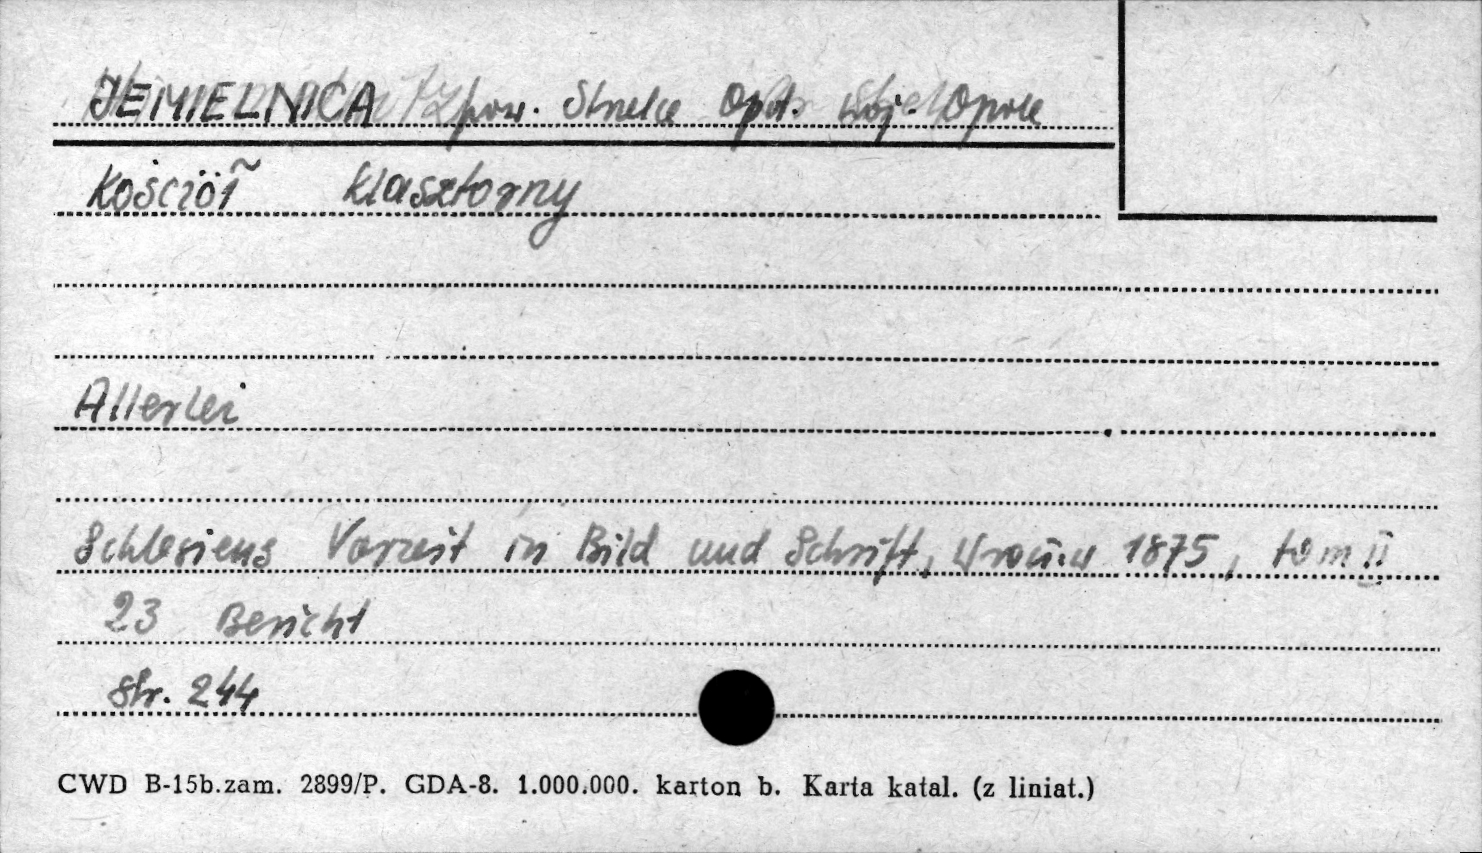 JEMIELNICA pow. Strzelce Opol. woj. Opole
Kościół klasztorny
Allerlei
Schlesiens Vorzeit in Bild und Schrift, Wrocław 1875, tom II
23 Bericht
str. 244
CWD B-15b.zam. 2899/P. GDA-8. 1.000.000. karton b. Karta katal. (z liniat.)